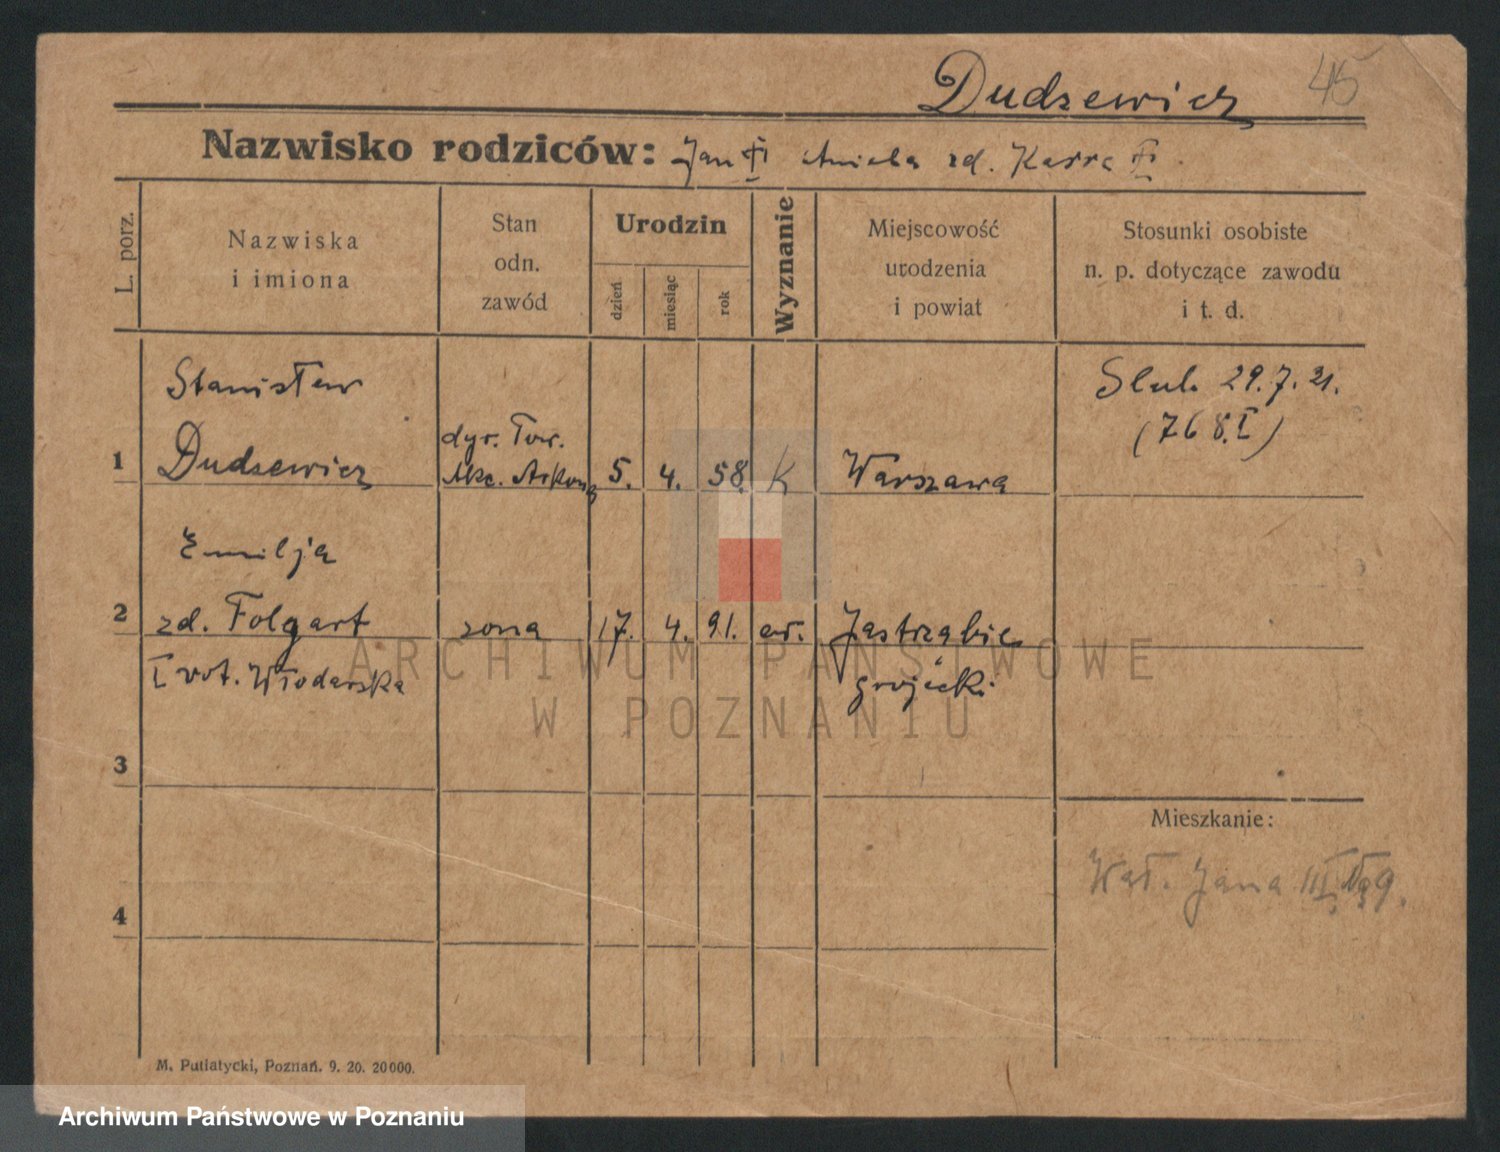 45
Dudzewicz
Nazwisko rodziców: Jan Aniela zd.
L. porz.
Nazwiska
i imiona
Stan
odn.
zawód
Urodzin
dzień
miesiąc
rok
Wyznanie
Miejscowość
urodzenia
i powiat
Stosunki osobiste
n. p. dotyczące zawodu
i t. d.
1
Stanisław
Dudzewicz
dyr. Tow.
Akc. Arkona
5. 4. 58. K
Warszawa
Slub. 29.7.21.
(768.I)
2
Emilja
zd. Folgart
I vot. Włodarska
żona
17. 4. 91. ew.
Jastrząbie
grójecki
3
4
Mieszkanie:
Wał. Jana III
M. Putiatycki, Poznań. 9. 20. 20000.
ARCHIWUM PAŃSTWOWE
W POZNANIU
Archiwum Państwowe w Poznaniu